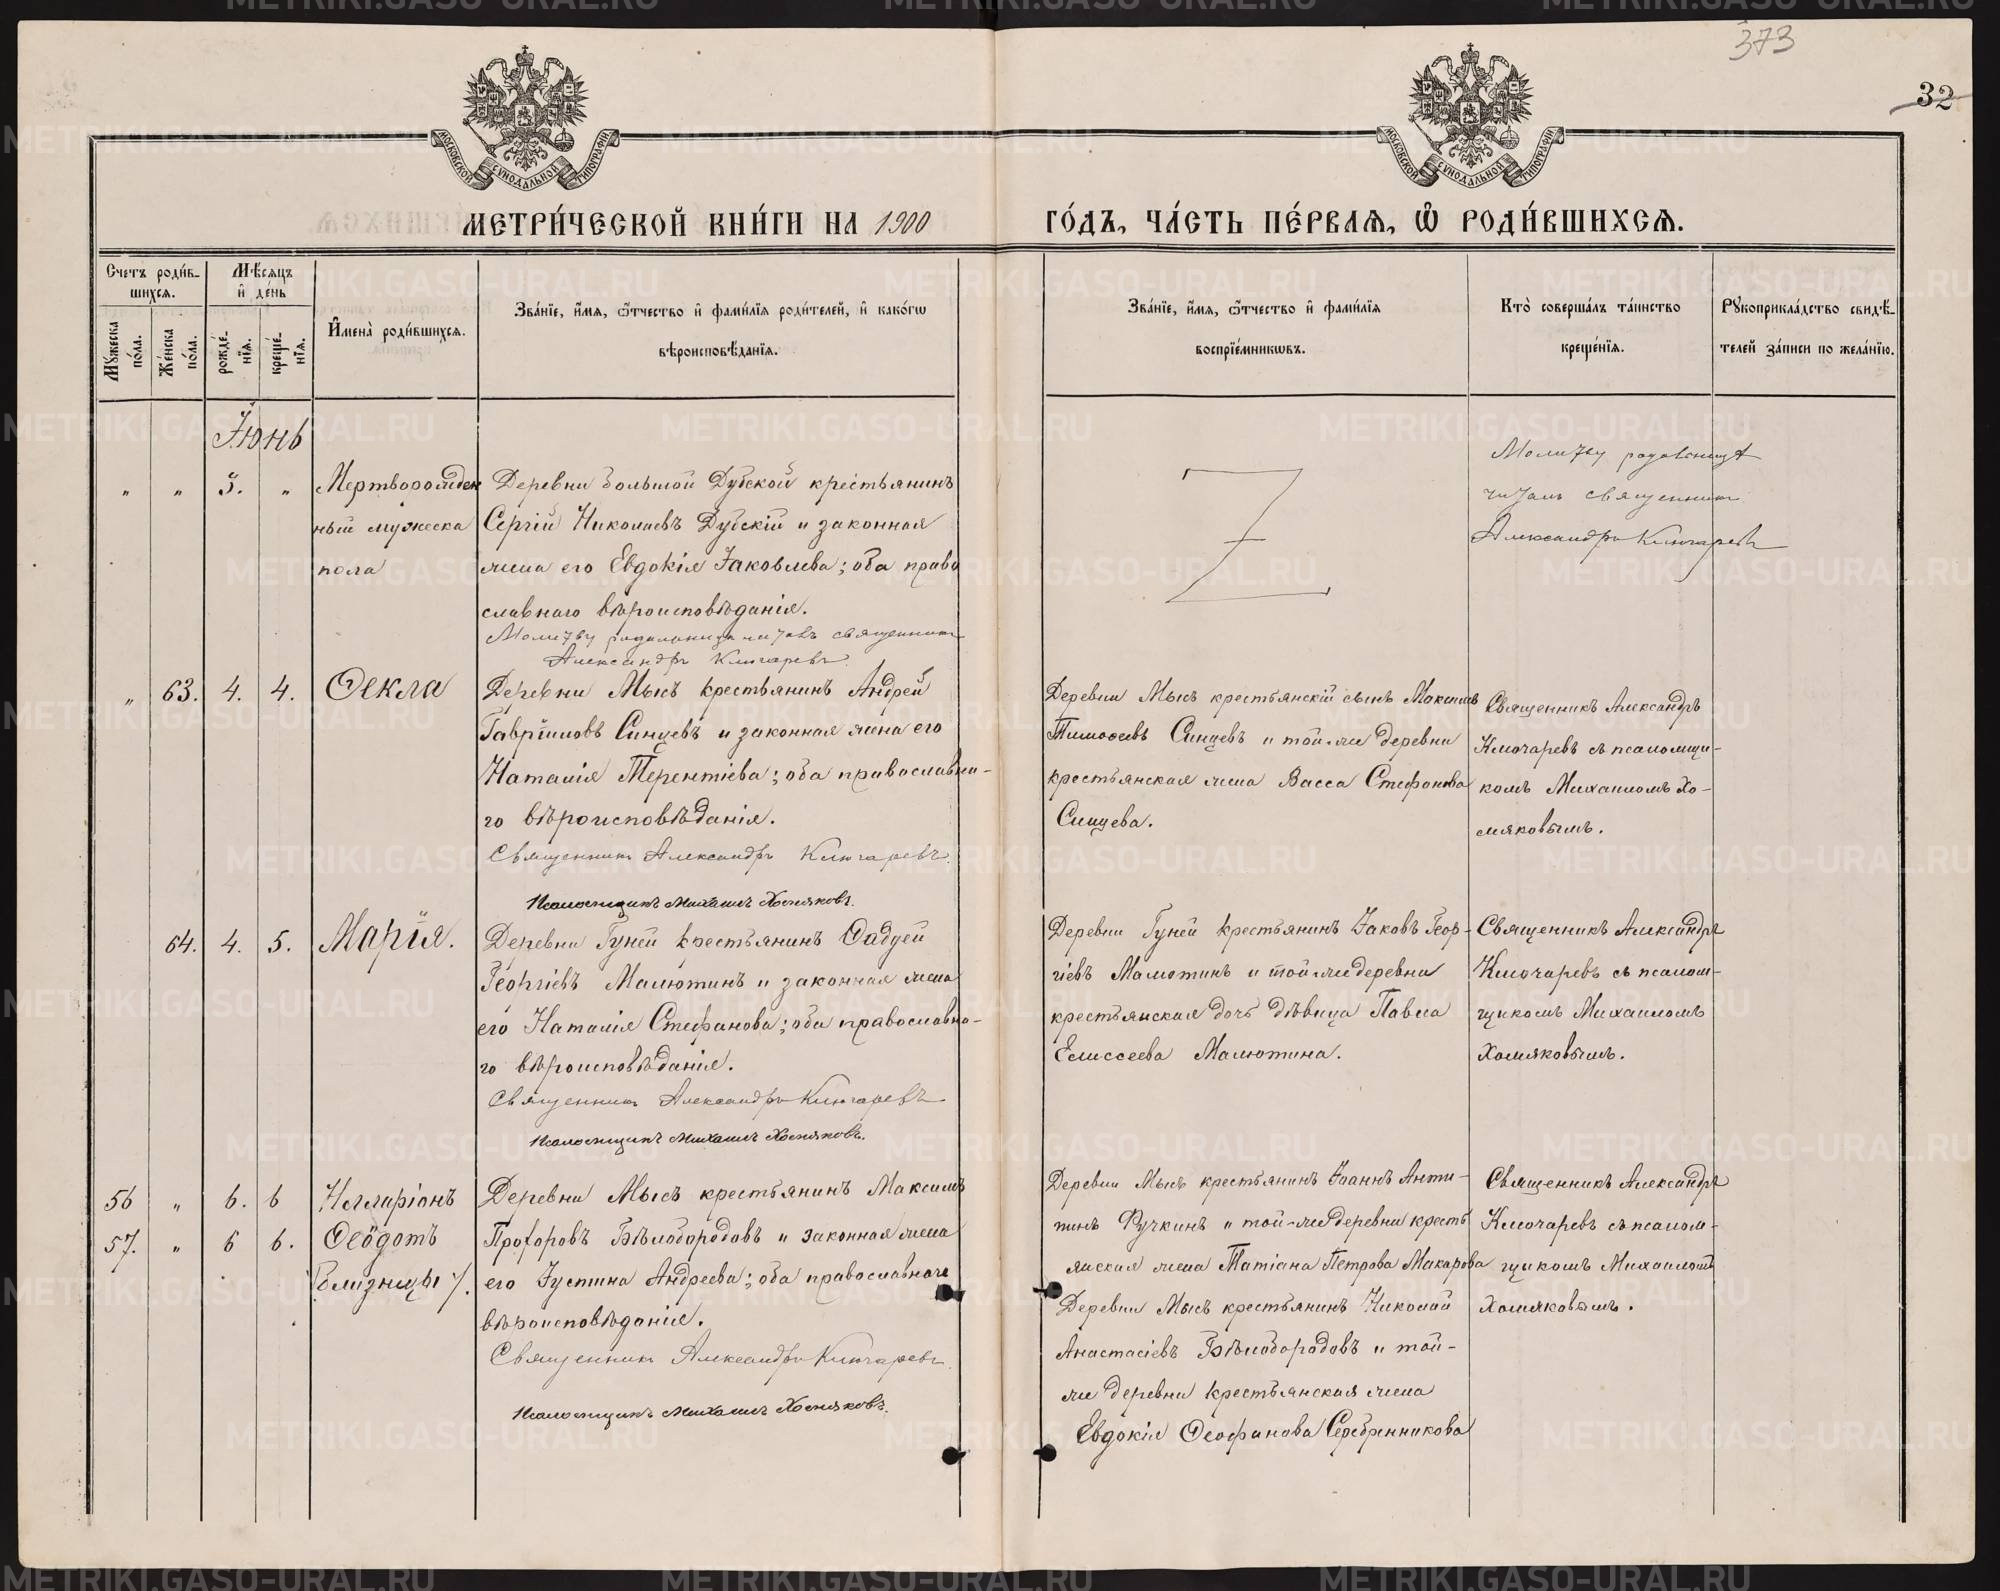 373
32
МОСКОВСКОЙ СѴНОДАЛЬНОЙ ТИПОГРАФІИ
МОСКОВСКОЙ СѴНОДАЛЬНОЙ ТИПОГРАФІИ
МЕТРИ́ЧЕСКОЙ КНИ́ГИ НА 1900
ГО́ДЪ, ЧА́СТЬ ПЕ́РВАѦ, Ѡ҆ РОДИ́ВШИХСѦ.
Счетъ роди́в-
шихсѧ.
Мѣ́сѧцъ
и҆ де́нь
Мꙋ́жеска
по́ла.
Же́нска
по́ла.
рожде-
нїѧ.
креще́-
нїѧ.
И҆мена̀ роди́вшихсѧ.
Зва́нїе, и҆́мѧ, ѻ҆́тчество и҆ фами́лїѧ роди́телей, и҆ како́гѡ
вѣроисповѣ́данїѧ.
Зва́нїе, и҆́мѧ, ѻ҆́тчество и҆ фами́лїѧ
воспрїе́мникѡвъ.
Кто̀ соверша́лъ та́инство
креще́нїѧ.
Рꙋкоприкла́дство свидѣ́-
телей за́писи по жела́нїю.
Іюнь
" " 3. " Мертворожден
ный мужеска
пола
Деревни Большой Дубской крестьянинъ
Сергій Николаевъ Дубскій и законная
жена его Евдокія Іаковлева; оба право
славнаго вѣроисповѣданія.
Молитву родильницѣ читалъ священникъ
Александръ Ключаревъ
Молитву
читалъ священникъ
Александръ Ключаревъ
" 63. 4. 4. Ѳекла
Деревни Мысъ крестьянинъ Андрей
Гавріиловъ Синцевъ и законная жена его
Наталія Терентіева; оба православна-
го вѣроисповѣданія.
Священникъ Александръ Ключаревъ.
Псаломщикъ Михаилъ Хомяковъ.
Деревни Мысъ крестьянскій сынъ Максимъ
Тимоѳеевъ Синцевъ и той-же деревни
крестьянская жена Васса Стефанова
Синцева.
Священникъ Александръ
Ключаревъ съ псаломщи-
комъ Михаиломъ Хо-
мяковымъ.
64. 4. 5. Марія.
Деревни Гуней крестьянинъ Ѳаддей
Георгіевъ Малютинъ и законная жена
его Наталія Стефанова; оба православна-
го вѣроисповѣданія.
Священникъ Александръ Ключаревъ
Псаломщикъ Михаилъ Хомяковъ.
Деревни Гуней крестьянинъ Іаковъ Геор-
гіевъ Малютинъ и той-же деревни
крестьянская дочь дѣвица Павла
Елиссеева Малютина.
Священникъ Александръ
Ключаревъ съ псалом-
щикомъ Михаиломъ
Хомяковымъ.
56 " 6. 6 Илларіонъ
57. " 6 6. Ѳеодотъ
/близнецы/.
Деревни Мысъ крестьянинъ Максимъ
Прохоровъ Бѣлобородовъ и законная жена
его Іустина Андреева; оба православнаго
вѣроисповѣданія.
Священникъ Александръ Ключаревъ.
Псаломщикъ Михаилъ Хомяковъ.
Деревни Мысъ крестьянинъ Іоаннъ Анти-
пинъ Ручкинъ и той-же деревни кресть
янская жена Татіана Петрова Макарова
Деревни Мысъ крестьянинъ Николай
Анастасіевъ Бѣлобородовъ и той-
же деревни крестьянская жена
Евдокія Ѳеофанова Серебренникова
Священникъ Александръ
Ключаревъ съ псалом-
щикомъ Михаиломъ
Хомяковымъ.
METRIKI.GASO-URAL.RU